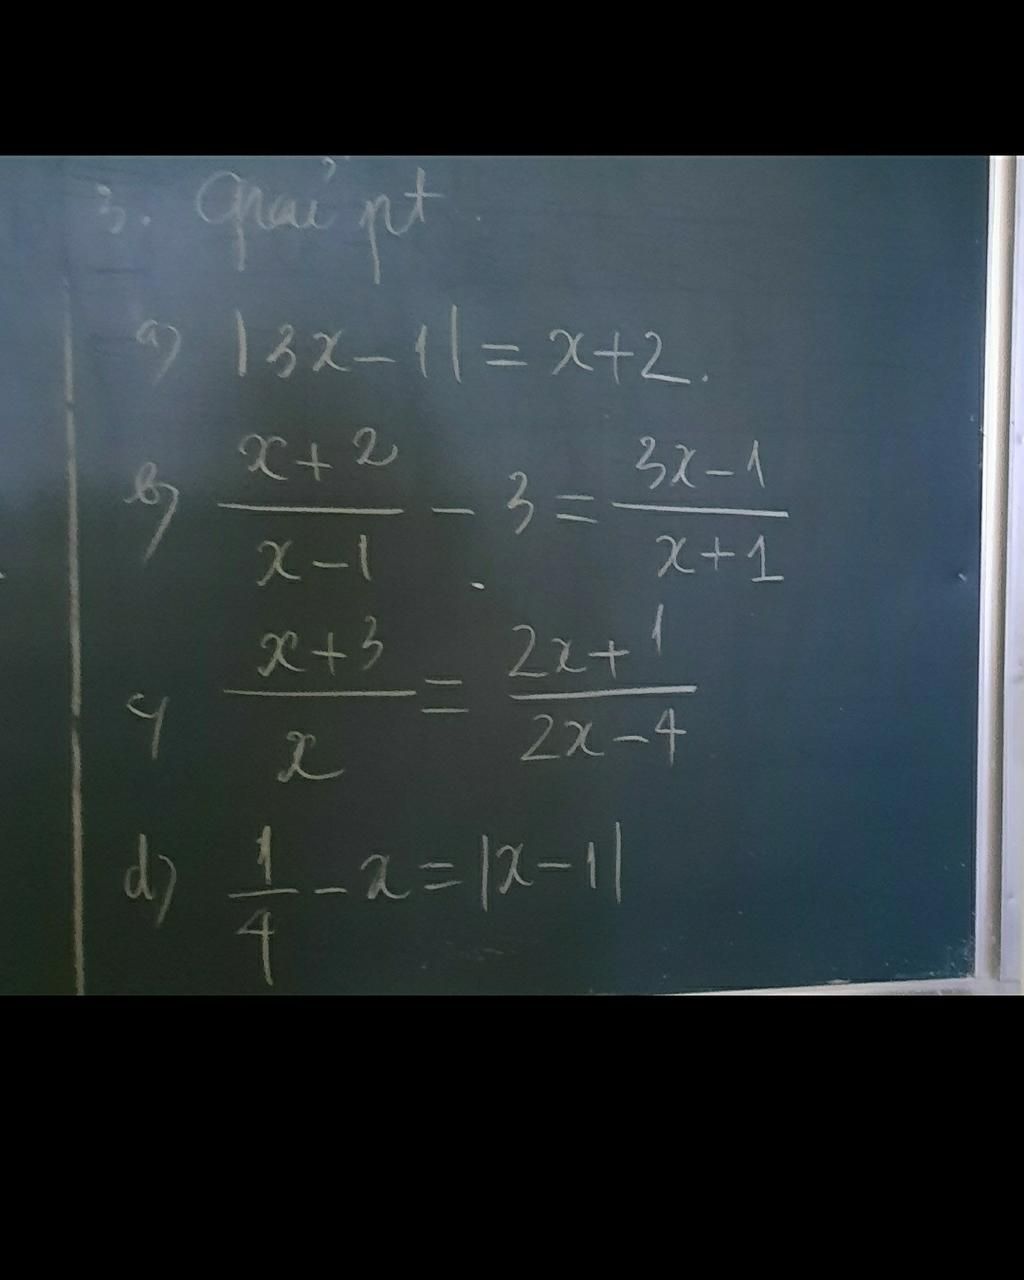 3. Giải pt.
a) |3x-1| = x+2.
b) \frac{x+2}{x-1} - 3 = \frac{3x-1}{x+1}
c) \frac{x+3}{x} = \frac{2x+1}{2x-4}
d) \frac{1}{4} - x = |x-1|